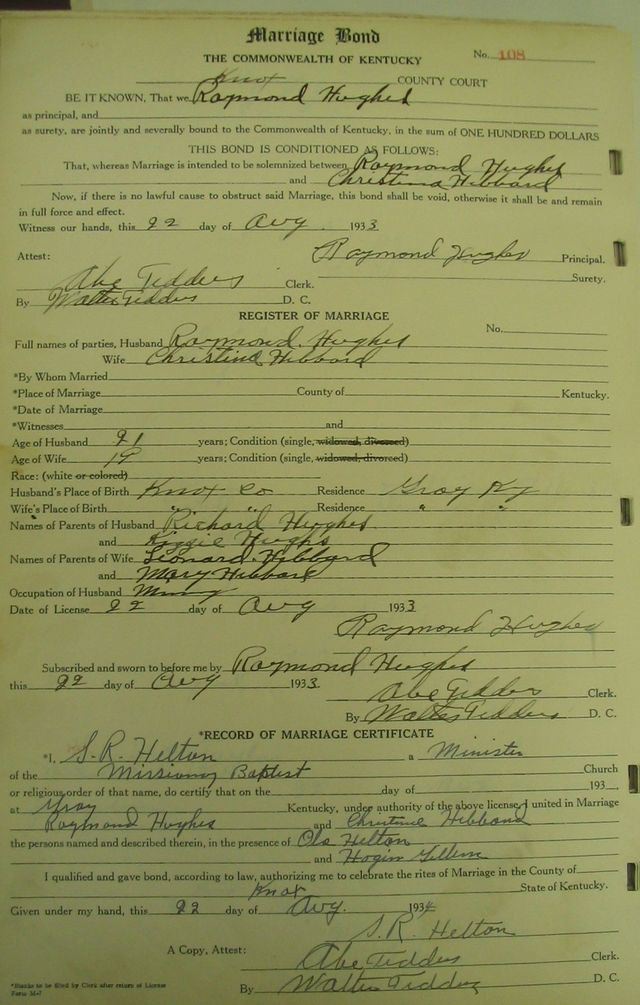 Marriage Bond
THE COMMONWEALTH OF KENTUCKY No. 108
Knox COUNTY COURT
BE IT KNOWN, That we Raymond Hughes
as principal, and
as surety, are jointly and severally bound to the Commonwealth of Kentucky, in the sum of ONE HUNDRED DOLLARS
THIS BOND IS CONDITIONED AS FOLLOWS:
That, whereas Marriage is intended to be solemnized between Raymond Hughes
and Christina Hibbard
Now, if there is no lawful cause to obstruct said Marriage, this bond shall be void, otherwise it shall be and remain
in full force and effect.
Witness our hands, this 22 day of Aug. 1933
Attest: Raymond Hughes Principal.
Surety.
Abe Tedders Clerk.
By Walter Tedders D. C.
REGISTER OF MARRIAGE
No.
Full names of parties, Husband Raymond Hughes
Wife Christina Hibbard
*By Whom Married
*Place of Marriage County of Kentucky.
*Date of Marriage
*Witnesses and
Age of Husband 21 years; Condition (single, widowed, divorced)
Age of Wife 19 years; Condition (single, widowed, divorced)
Race: (white or colored)
Husband's Place of Birth Knox Co Residence Gray Ky
Wife's Place of Birth " " Residence " "
Names of Parents of Husband Richard Hughes
and Lizzie Hughs
Names of Parents of Wife Leonard Hibbard
and Mary Hibbard
Occupation of Husband
Date of License 22 day of Aug 1933
Raymond Hughes
Subscribed and sworn to before me by Raymond Hughes
this 22 day of Aug 1933.
Abe Tedders Clerk.
By Walter Tedders D. C.
*RECORD OF MARRIAGE CERTIFICATE
*I, S. R. Helton a Minister
of the Missionary Baptist Church
or religious order of that name, do certify that on the day of 193
at Gray Kentucky, under authority of the above license, I united in Marriage
Raymond Hughes and Christine Hibbard
the persons named and described therein, in the presence of Ola Helton
and
I qualified and gave bond, according to law, authorizing me to celebrate the rites of Marriage in the County of
Knox State of Kentucky.
Given under my hand, this 22 day of Aug. 1934
S. R. Helton
A Copy, Attest: Abe Tedders Clerk.
By Walter Tedders D. C.
*Blanks to be filed by Clerk after return of License
Form M-7